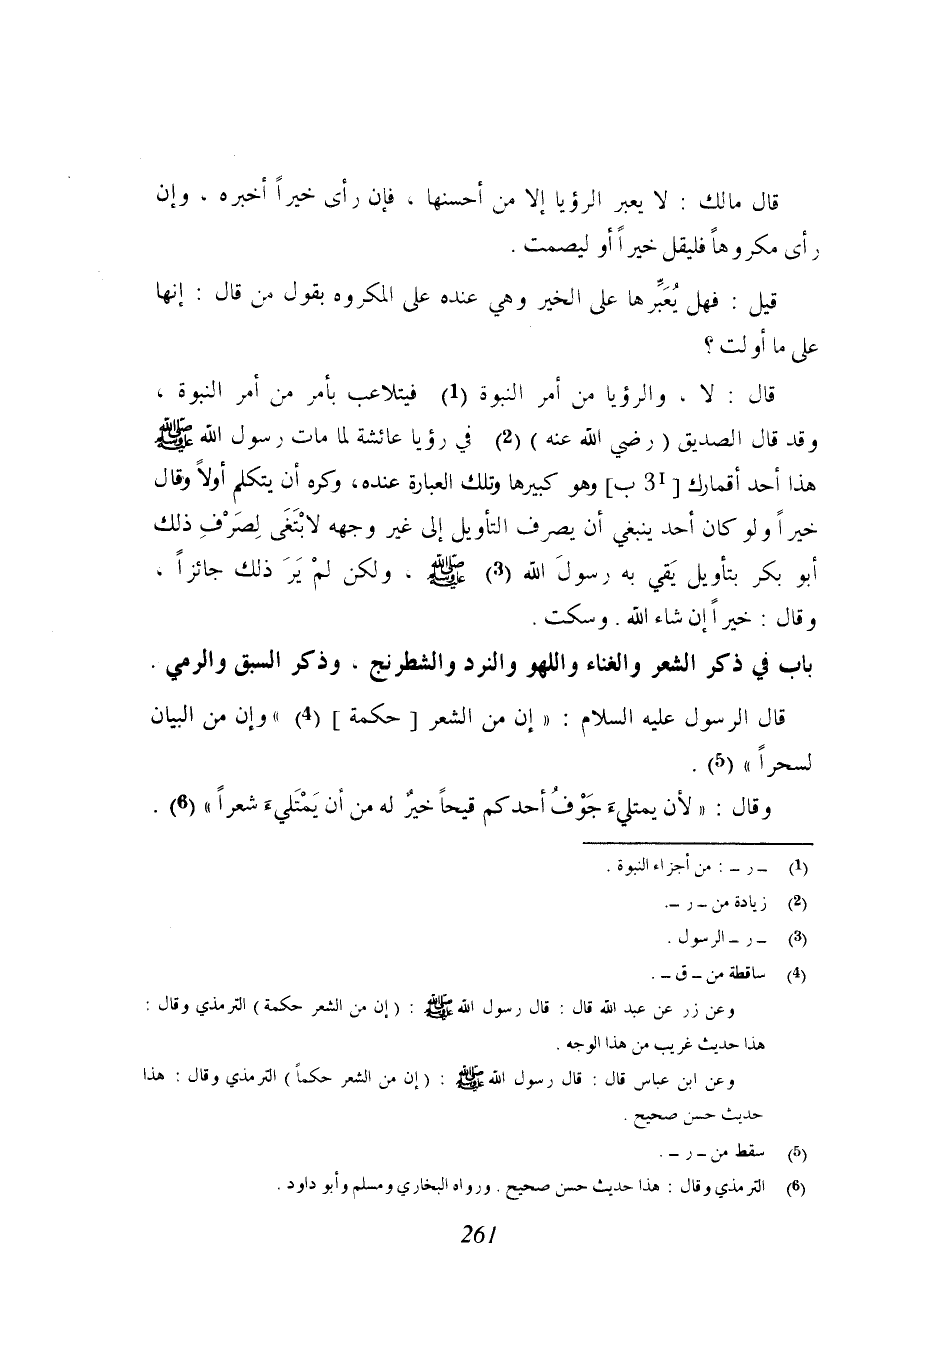 قال مالك : لا يعبر الرؤيا إلا من أحسنها ، فإن رأى خيراً أخبره . وإن
رأى مكروهاً فليقل خيراً أو ليصمت .
قيل : فهل يُعَبِّرها على الخير وهي عنده على المكروه بقول من قال : إنها
على ما أولت ؟
قال : لا . والرؤيا من أمر النبوة (1) فيتلاعب بأمر من أمر النبوة ،
وقد قال الصديق ( رضي الله عنه ) (2) في رؤيا عائشة لما مات رسول الله ﷺ
هذا أحد أقمارك [ 31 ب] وهو كبيرها وتلك العبارة عنده، وكره أن يتكلم أولاً وقال
خيراً ولو كان أحد ينبغي أن يصرف التأويل إلى غير وجهه لابْتَغَى لِصَرْفِ ذلك
أبو بكر بتأويل يَقي به رسولَ الله (3) ﷺ ، ولكن لمْ يَرَ ذلك جائزاً ،
وقال : خيراً إن شاء الله . وسكت .
باب في ذكر الشعر والغناء واللهو والنرد والشطرنج ، وذكر السبق والرمي .
قال الرسول عليه السلام : « إن من الشعر [ حكمة ] (4) » وإن من البيان
لسحراً » (5) .
وقال : « لأن يمتليءَ جَوْفُ أحدكم قيحاً خيرٌ له من أن يَمْتَليءَ شعراً » (6) .
(1) – ر – : من أجزاء النبوة .
(2) زيادة من – ر –.
(3) – ر – الرسول .
(4) ساقطة من – ق – .
وعن زر عن عبد الله قال : قال رسول الله ﷺ : ( إن من الشعر حكمة ) الترمذي وقال :
هذا حديث غريب من هذا الوجه .
وعن ابن عباس قال : قال رسول الله ﷺ : ( إن من الشعر حكماً ) الترمذي وقال : هذا
حديث حسن صحيح .
(5) سقط من – ر – .
(6) الترمذي وقال : هذا حديث حسن صحيح . ورواه البخاري ومسلم وأبو داود .
261